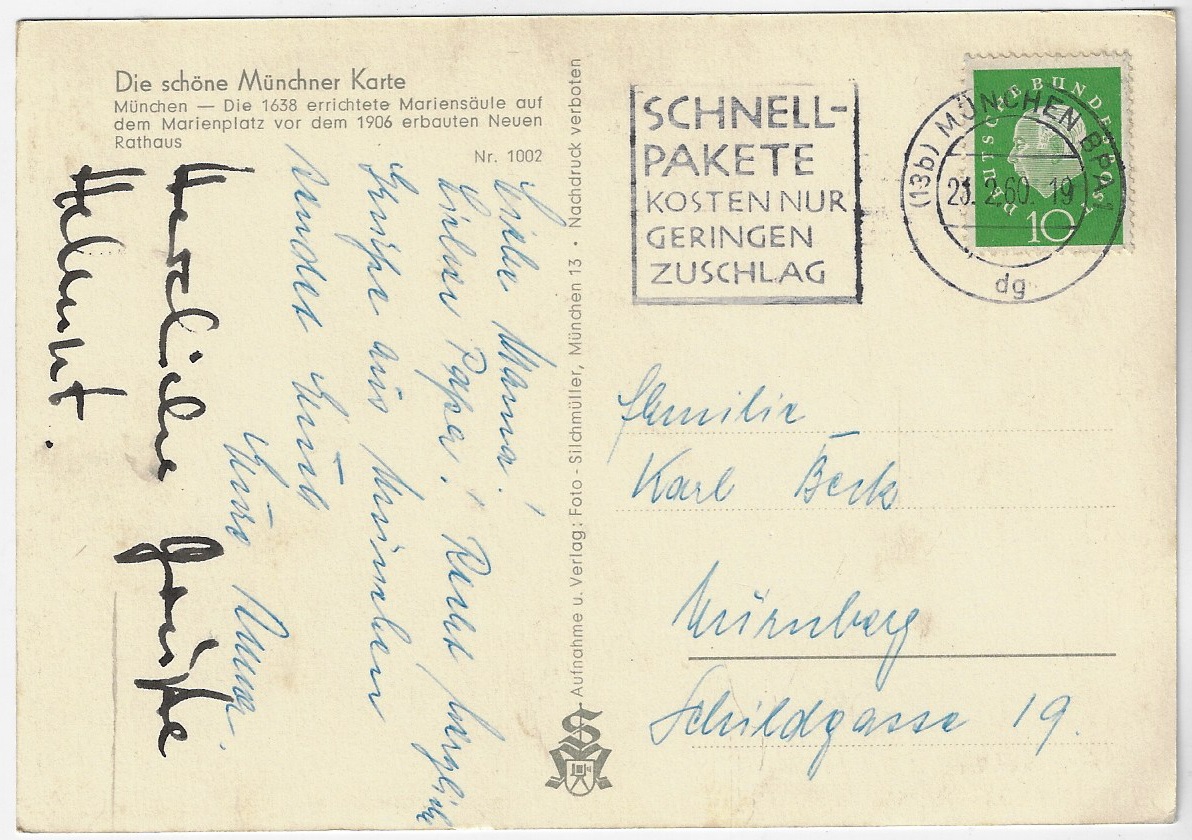 Die schöne Münchner Karte
München — Die 1638 errichtete Mariensäule auf
dem Marienplatz vor dem 1906 erbauten Neuen
Rathaus
Nr. 1002
Liebe Mama!
Lieber Papa! Recht herzliche
Grüße aus München
sendet Euch
Eure
Herzliche Grüße
Helmut.
Aufnahme u. Verlag: Foto-Silchmüller, München 13 • Nachdruck verboten
SCHNELL-
PAKETE
KOSTEN NUR
GERINGEN
ZUSCHLAG
(13b) MÜNCHEN BPA 1
2.60. 19
dg
DEUTSCHE BUNDESPOST
10
Familie
Karl Beck
Nürnberg
Schildgasse 19.